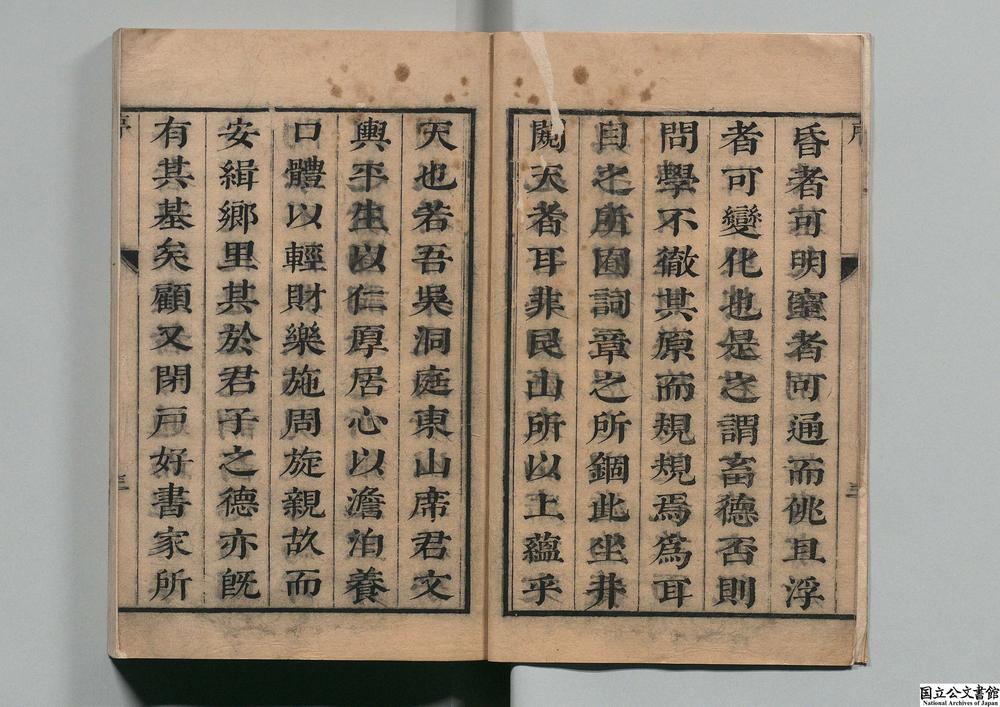 序
昏者可明窒者可通而佻且浮
者可變化也是之謂畜德否則
問學不徹其原而規規焉為耳
目之所囿詞章之所錮此坐井
闚天者耳非艮山所以上蘊乎
三
天也若吾吳洞庭東山席君文
輿平生以仁厚居心以澹泊養
口體以輕財樂施周旋親故而
安緝鄉里其於君子之德亦旣
有其基矣顧又閉戸好書家所
序
三
国立公文書館
National Archives of Japan